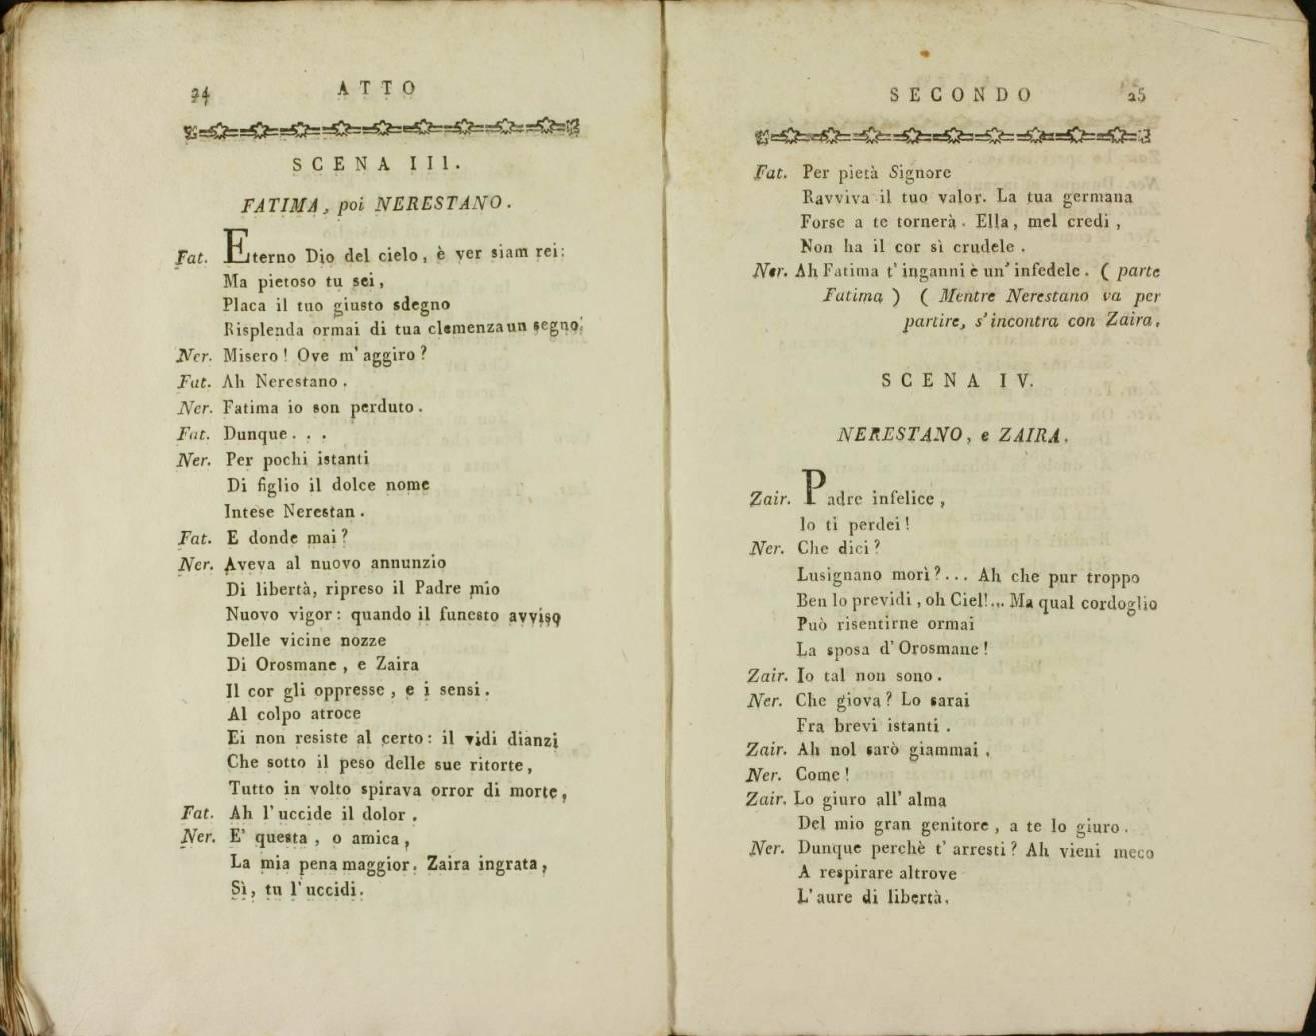 24
ATTO
SCENA III.
FATIMA, poi NERESTANO.
Fat. Eterno Dio del cielo, è ver siam rei:
Ma pietoso tu sei,
Placa il tuo giusto sdegno
Risplenda ormai di tua clemenza un segno.
Ner. Misero! Ove m'aggiro?
Fat. Ah Nerestano.
Ner. Fatima io son perduto.
Fat. Dunque...
Ner. Per pochi istanti
Di figlio il dolce nome
Intese Nerestan.
Fat. E donde mai?
Ner. Aveva al nuovo annunzio
Di libertà, ripreso il Padre mio
Nuovo vigor: quando il funesto avviso
Delle vicine nozze
Di Orosmane, e Zaira
Il cor gli oppresse, e i sensi.
Al colpo atroce
Ei non resiste al certo: il vidi dianzi
Che sotto il peso delle sue ritorte,
Tutto in volto spirava orror di morte,
Fat. Ah l'uccide il dolor.
Ner. E' questa, o amica,
La mia pena maggior. Zaira ingrata,
Sì, tu l'uccidi.
SECONDO
25
Fat. Per pietà Signore
Ravviva il tuo valor. La tua germana
Forse a te tornerà. Ella, mel credi,
Non ha il cor sì crudele.
Ner. Ah Fatima t'inganni è un' infedele. (parte
Fatima) (Mentre Nerestano va per
partire, s'incontra con Zaira.
SCENA IV.
NERESTANO, e ZAIRA.
Zair. Padre infelice,
Io ti perdei!
Ner. Che dici?
Lusignano morì?... Ah che pur troppo
Ben lo previdi, oh Ciel!... Ma qual cordoglio
Può risentirne ormai
La sposa d'Orosmane!
Zair. Io tal non sono.
Ner. Che giova? Lo sarai
Fra brevi istanti.
Zair. Ah nol sarò giammai.
Ner. Come!
Zair. Lo giuro all'alma
Del mio gran genitore, a te lo giuro.
Ner. Dunque perchè t'arresti? Ah vieni meco
A respirare altrove
L'aure di libertà.